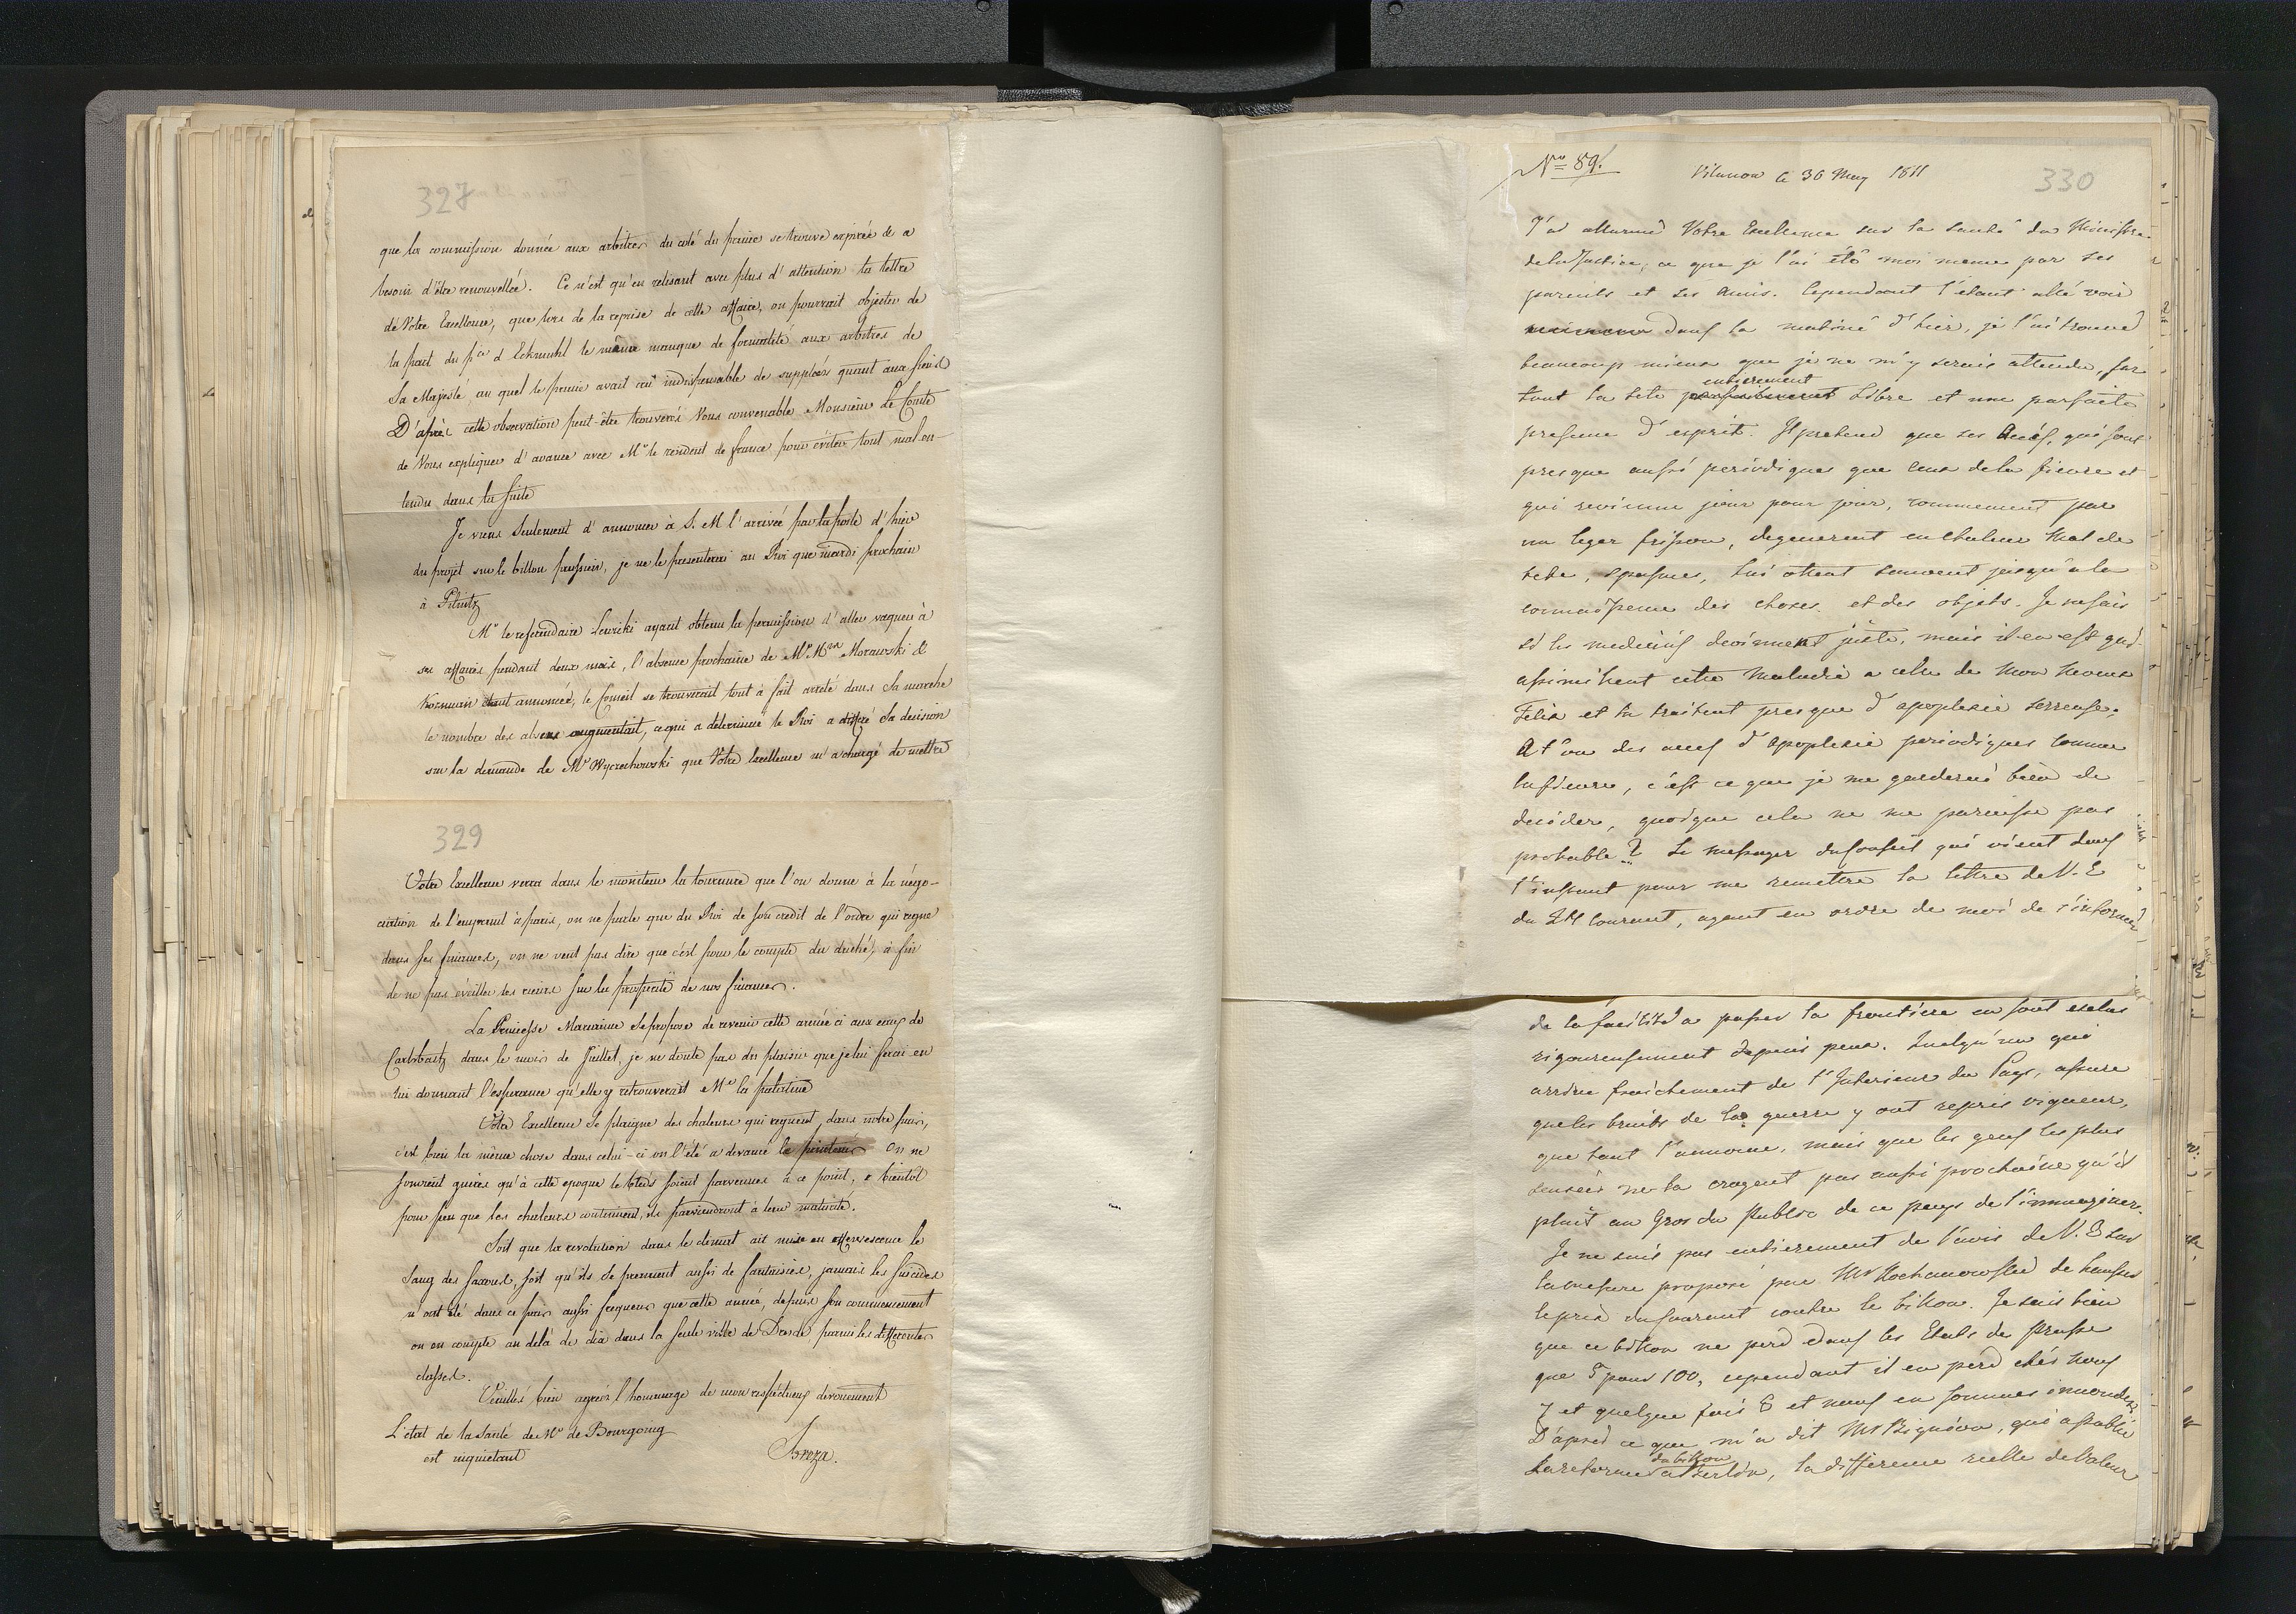 327
que la commission donnée aux arbitres du coté du prince se trouve expirée & a
besoin d'être renouvellée. Ce n'est qu'en relisant avec plus d'attention la lettre
de Votre Excellence, que lors de la reprise de cette affaire, on pourrait objecter de
la part du pce d'Eckmuhl le même manque de formalité aux arbitres de
Sa Majesté, au quel le prince avait cru indispensable de suppléer quant aux siens
D'après cette observation peut-être trouverés Vous convenable Monsieur Le Comte
de Vous expliquer d'avance avec Mr le resident de france pour éviter tout mal en-
tendu dans la suite
Je viens seulement d'annoncer à S. M l'arrivée par la poste d'hier
du projet sur le billon prussien, je ne le presenterai au Roi que mardi prochain
à Pilnitz
Mr le referendaire Lewicki ayant obtenu la permission d'aller vaquer à
ses affaires pendant deux mois, l'absence prochaine de Mrs Morawski &
Kozmian étant annoncée, le Conseil se trouverait tout à fait arreté dans sa marche
le nombre des absens augmentait, ce qui a determiné le Roi a differé sa decision
sur la demande de Mr Wyczechowski que Votre Excellence m'a chargé de mettre
329
Votre Excellence verra dans le moniteur la tournure que l'on donne à la négo-
ciation de l'emprunt à paris, on ne parle que du Roi de son credit de l'ordre qui regne
dans ses finances, on ne veut pas dire que c'est pour le compte du duché, à fin
de ne pas éveiller les rieurs sur la prosperité de nos finances.
La Princesse Marianne se propose de revenir cette année ci aux eaux de
Carlsbaadt dans le mois de Juillet, je ne doute pas du plaisir que je lui ferai en
lui donnant l'esperance qu'elle y retrouverait Me la palatine
Votre Excellence se plaigne des chaleurs qui regnent dans notre pais,
c'est bien la même chose dans celui-ci où l'été a devancé le printems On ne
souvient guères qu'à cette epoque le bleds soient parvenues à ce point, & bientôt
pour peu que les chaleurs continuent, ils parviendront à leur maturité.
Soit que la revolution dans le climat ait mise en effervescence le
sang des saxons, soit qu'ils se prennent aussi de fantaisies, jamais les suicides
n'ont été dans ce pais aussi frequens que cette année, depuis son commencement
on en compte au delà de dix dans la seule ville de Dresde parmi les differentes
classes.
Veuillés bien agréer l'hommage de mon respectueux devouement
L'état de la santé de Mr de Bourgoing
est inquietant
Breza.
No 89.
Vilanow le 30 May 1811
330
J'ai allarmé Votre Excellence sur la santé du Ministre
de la Justice, ce que je l'ai été moi meme par ses
parents et ses amis. Cependant l'etant allé voir
dans la matiné d'hier, je l'ai trouvé
beaucoup mieux que je ne m'y serais attendu, sur
entierement
tout la tete libre et une parfaite
presence d'esprit. Il pretend que ses accès, qui sont
presque aussi periodiques que ceux de la fievre et
qui revienne jour pour jour, commencent par
un leger frisson, degenerent en chaleur mal de
tete, spasmes, lui otent souvent jusqu'a la
connaissence des choses et des objets. Je ne sais
si les medecins devinnent juste, mais il en est qui
assimilent cette maladie a celle de mon neveux
Felix et la traitent presque d'apoplexie serreuse.
A t'on des accès d'apoplexie periodiques comme
la fievre, c'est ce que je me garderai bien de
decider, quoique cela ne me paraisse pas
probable? Le messager du conseil qui vient dans
l'instant pour me remettre la lettre de V. E
du 24 courent, ayant eu ordre de moi de s'informer
de la facilité a passer la frontiere en sont exclus
rigoureusement depuis peu. Quelqu'un qui
arrive fraichement de l'Interieur du Pays, assure
que les bruits de la guerre y ont repris vigueur,
que tout l'annonce, mais que les gens les plus
sensés ne la croyent pas aussi prochaine qu'il
plait au Gros du Public de ce pays de l'immaginer.
Je ne suis pas entierement de l'avis de V. E sur
la mesure proposé par Mr Kochanowski de hausser
le prix du courant contre le billon. Je sais bien
que ce billon ne perd dans les Etats de Prusse
que 5 pour 100, cependant il en perd chés nous
7 et quelque fois 8 et neuf en sommes
D'après ce que m'a dit Mr Bignon, qui a établi
du billon
la reforme a Berlin, la difference reelle de Valeur